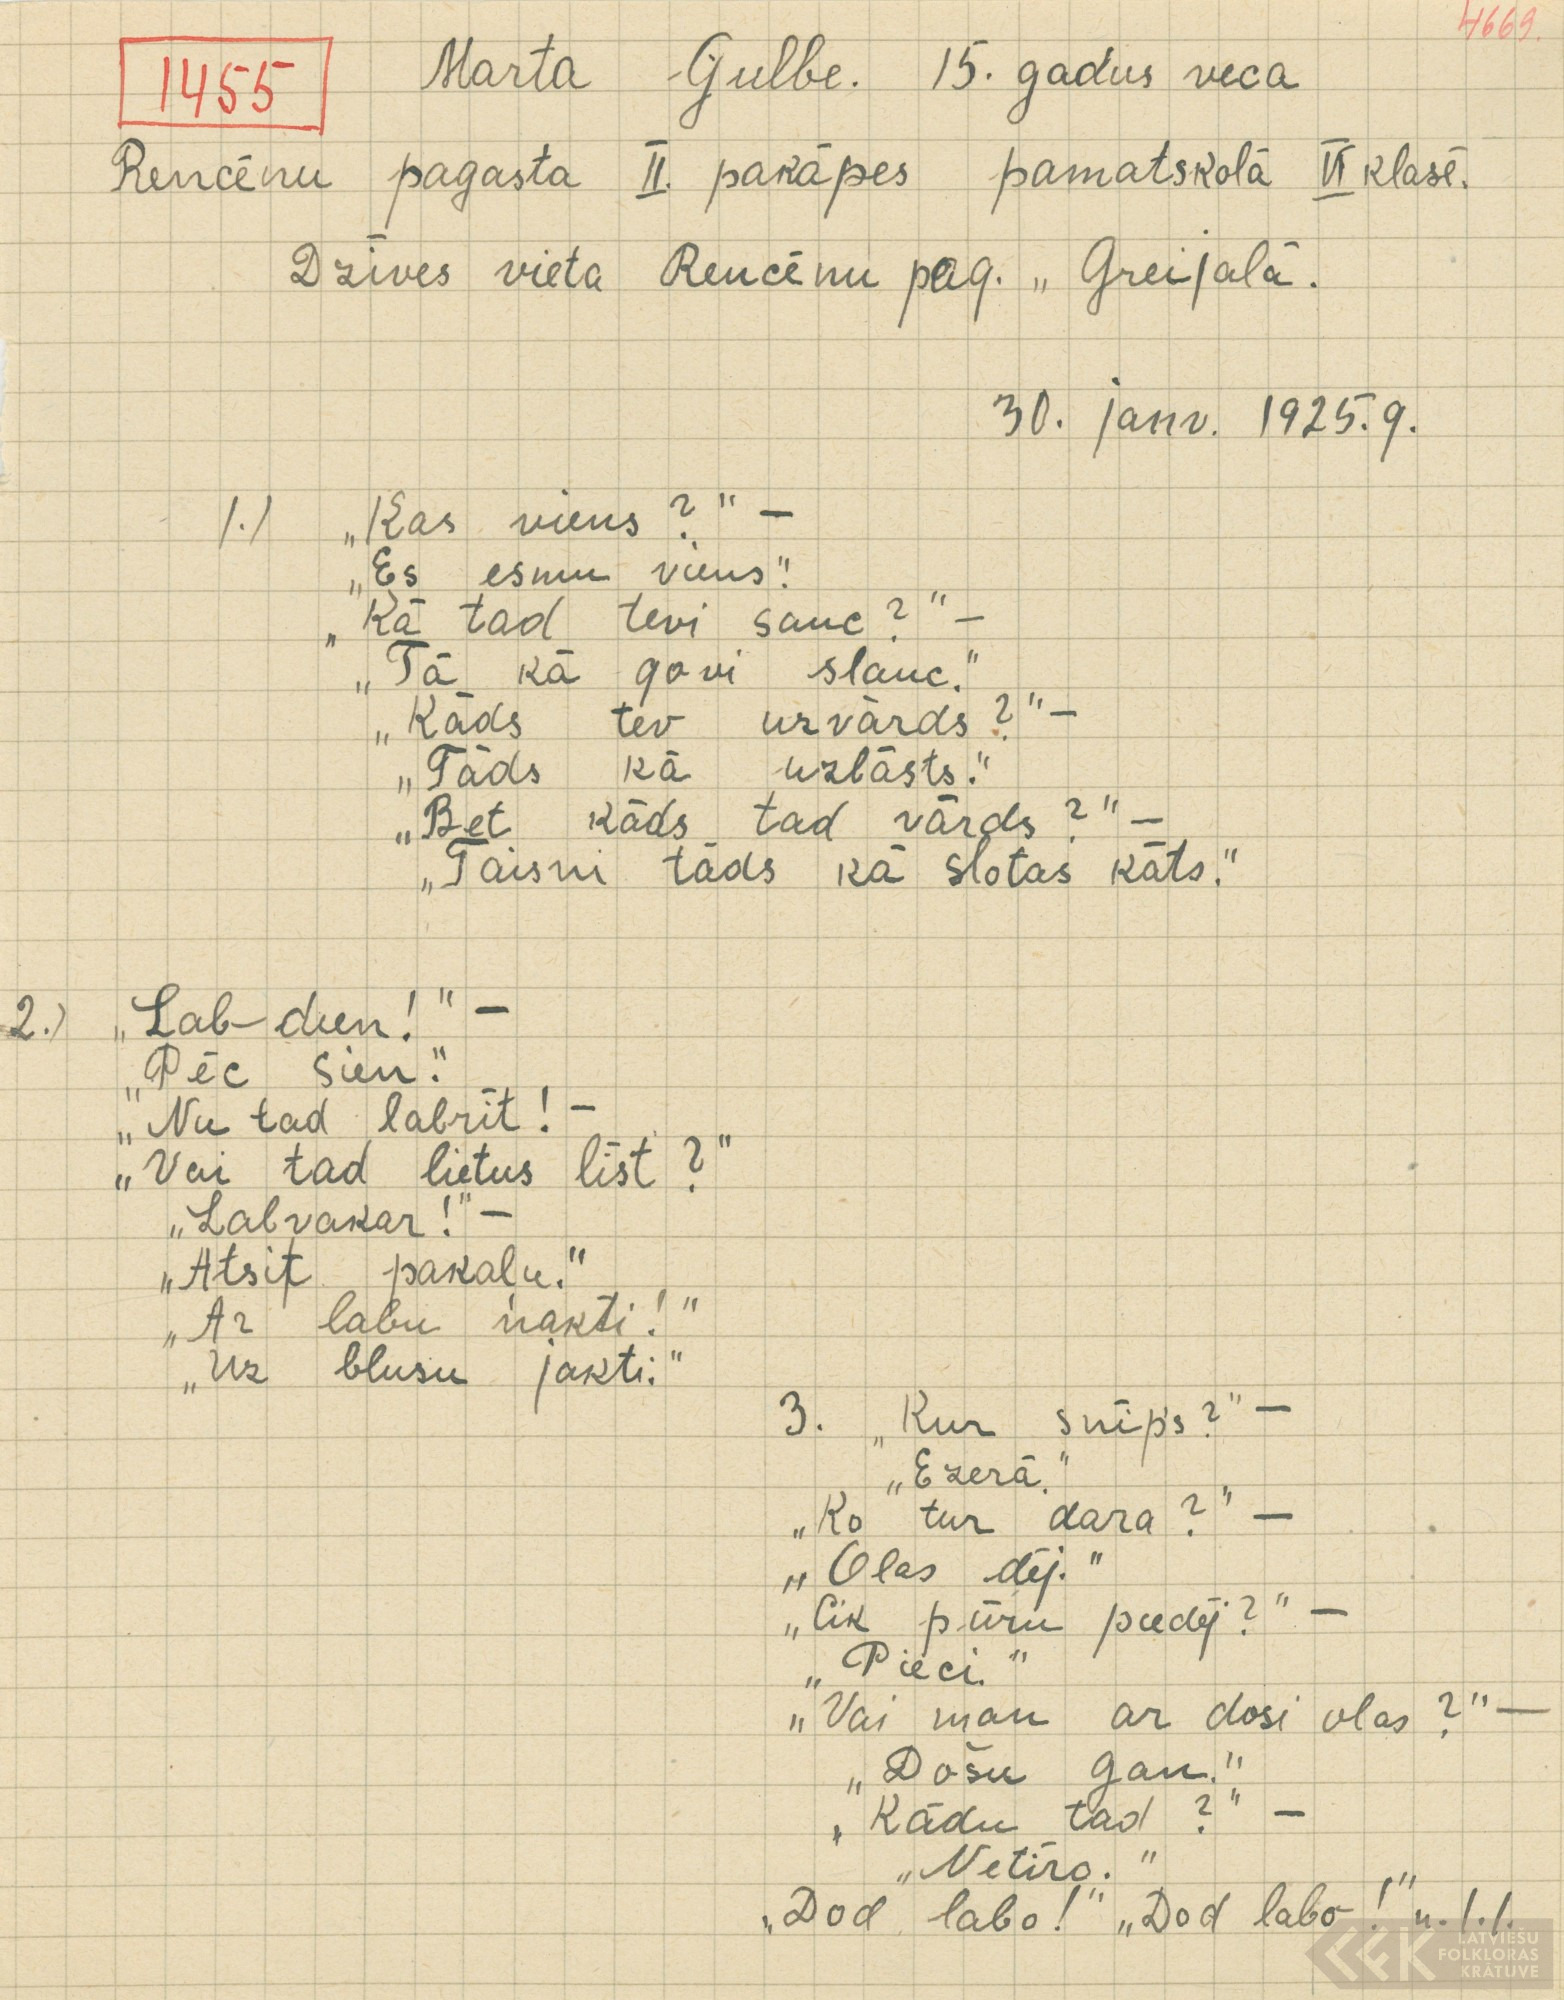 4669.
1455
Marta Gulbe. 15. gadus veca
Rencēnu pagasta II. pakāpes pamatskolā VI klasē.
Dzīves vieta Rencēnu pag. „Greijalā.
30. janv. 1925. g.
1.) „Kas viens?" —
„Es esmu viens."
„Kā tad tevi sauc?" —
„Tā kā govi slauc."
„Kāds tev uzvārds?" —
„Tāds kā uzbāsts."
„Bet kāds tad vārds?" —
„Taisni tāds kā slotas kāts."
2.) „Lab-dien!" —
„Pēc sien."
„Nu tad labrīt! —
„Vai tad lietus līst?"
„Labvakar!" —
„Atsit pakaļu."
„Ar labu nakti!"
„Uz blusu jakti."
3. „Kur snīps?" —
„Ezerā."
„Ko tur dara?" —
„Olas dēj."
„Cik pūru piedēj?" —
„Pieci."
„Vai man ar dosi olas?" —
„Došu gan."
„Kādu tad?" —
„Netīro."
„Dod labo!" „Dod labo!" u. t. t.
LATVIEŠU
FOLKLORAS
KRĀTUVE